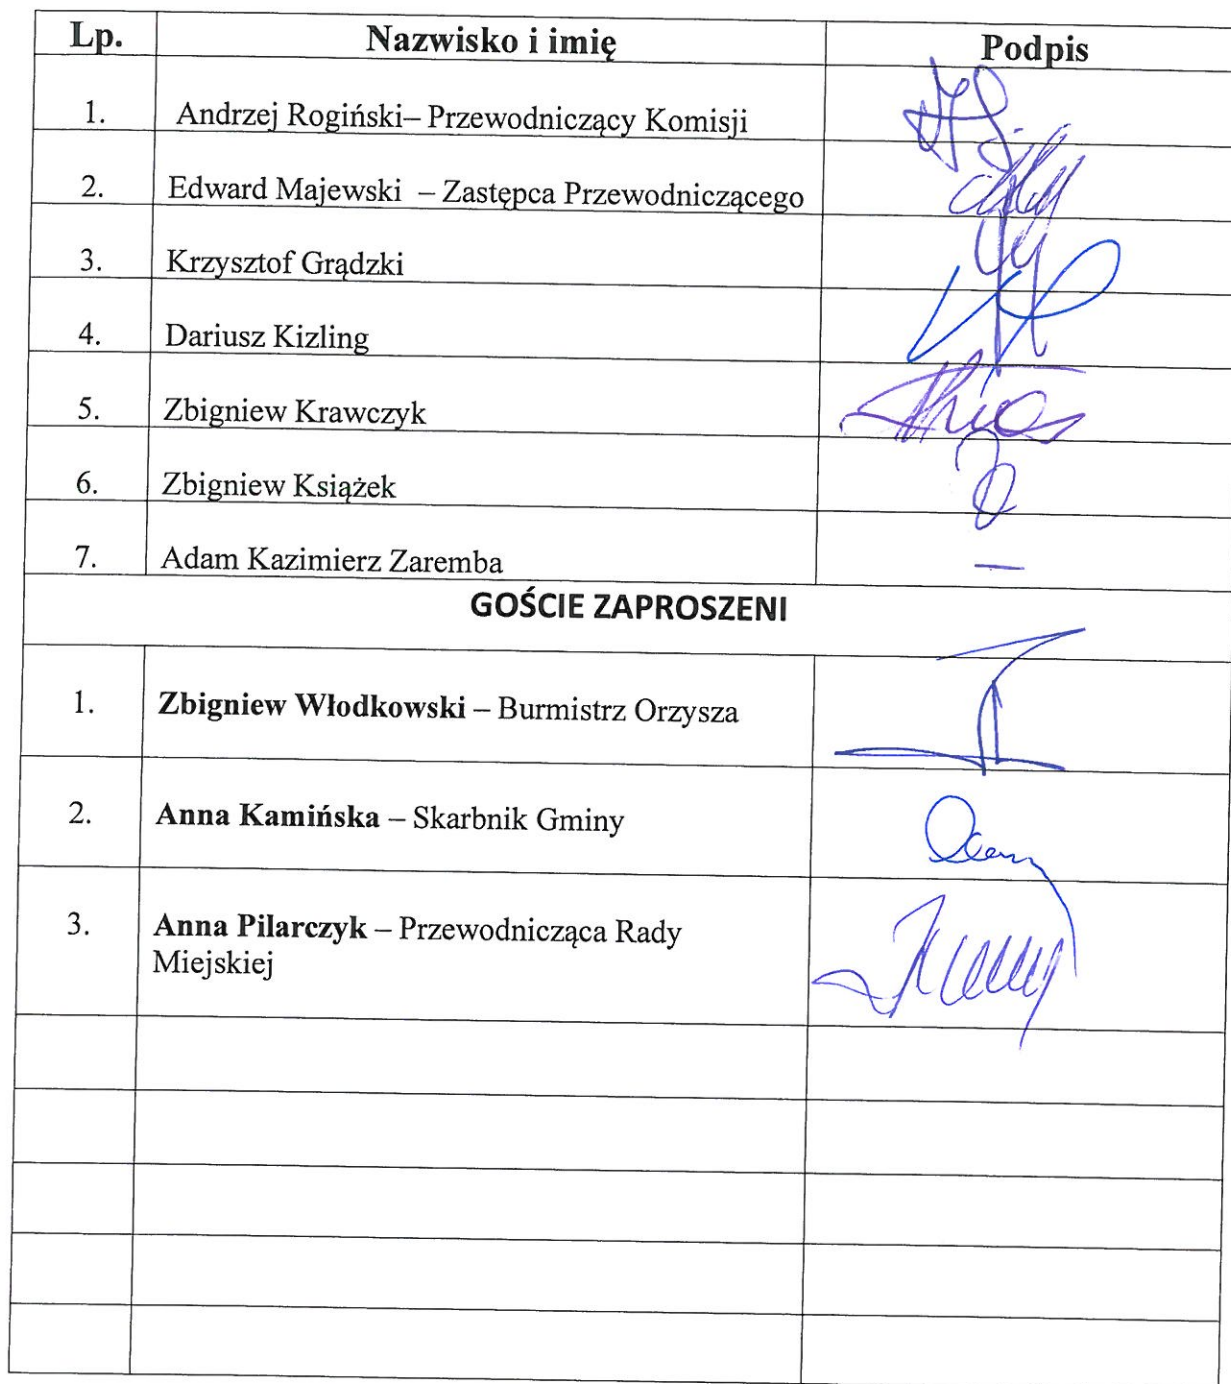 Lp. Nazwisko i imię Podpis
1. Andrzej Rogiński– Przewodniczący Komisji
2. Edward Majewski – Zastępca Przewodniczącego
3. Krzysztof Grądzki
4. Dariusz Kizling
5. Zbigniew Krawczyk
6. Zbigniew Książek
7. Adam Kazimierz Zaremba —
GOŚCIE ZAPROSZENI
1. Zbigniew Włodkowski – Burmistrz Orzysza
2. Anna Kamińska – Skarbnik Gminy
3. Anna Pilarczyk – Przewodnicząca Rady
Miejskiej